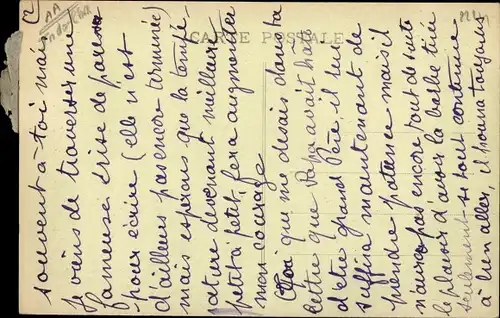 souvent à toi mais
je viens de traverser une
fameuse crise de paresse
pour écrire (elle n'est
d'ailleurs pas encore terminée)
mais espérons que la tempé-
rature devenant meilleure
petit à petit, fera augmenter
mon courage
Toi qui me disais dans ta
lettre que Papa avait hâte
d'être grand Père, il lui
suffira maintenant de
prendre patience mais il
n'aura pas encore tout de suite
le plaisir d'avoir la barbe tirée
seulement si tout continue
à bien aller, il pourra toujours
CARTE POSTALE